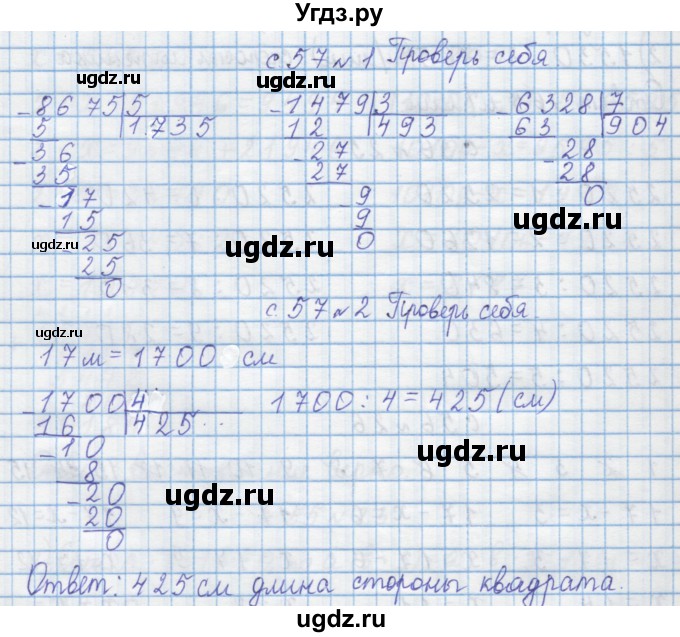 Угдз.ру
с 57 № 1 Проверь себя
ugdz.ru
ugdz.ru
-8675|5 -1479|3 -6328|7
5 |1735 12 |493 63 |904
-36 -27 -28
35 27 28
-17 -9 0
15 9
-25 0
25
0
ugdz.ru
ugdz.ru
ugdz.ru
с 57 № 2 Проверь себя.
ugdz.ru
17м = 1700 см
-1700|4 1700 : 4 = 425 (см)
16 |425
-10
8
-20
20
0
ugdz.ru
ugdz.ru
Ответ: 425 см длина стороны квадрата.
ugdz.ru